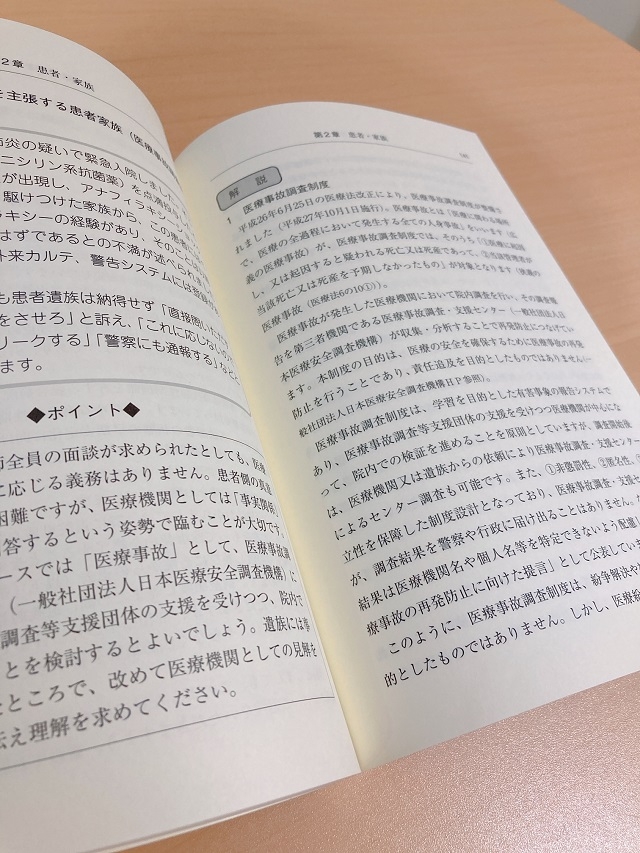 2章 患者・家族
を主張する患者家族（医療事故
肺炎の疑いで緊急入院しました
ニシリン系抗菌薬）を点滴
が出現し、アナフィラキシ
駆けつけた家族から、この患者
ラキシーの経験があり、そのこと
はずであるとの不満が述べられ
外来カルテ、警告システムには
も患者遺族は納得せず「直接
をさせろ」と訴え、「これに応じない
リークする」「警察にも通報する」など
ます。
◆ポイント◆
師全員の面談が求められたとしても、
に応じる義務はありません。患者側の
困難ですが、医療機関としては「事実関係
回答するという姿勢で臨むことが大切です
ースでは「医療事故」として、医療事故調
（一般社団法人日本医療安全調査機構）に
調査等支援団体の支援を受けつつ、院内で
ことを検討するとよいでしょう。遺族には
たところで、改めて医療機関としての見解を
伝え理解を求めてください。
第2章 患者・家族
解説
1 医療事故調査制度
平成26年6月25日の医療法改正により、医療事故調査制度が整備さ
れました（平成27年10月1日施行）。医療事故とは「医療に関わる場所
で、医療の全過程において発生する全ての人身事故」をいいますが（広
義の医療事故）が、医療事故調査制度では、そのうち「①医療に起因
し、又は起因すると疑われる死亡又は死産であって、②当該管理者が
当該死亡又は死産を予期しなかったもの」が対象となります（狭義の
医療事故（医療法6の10①））。
医療事故が発生した医療機関において院内調査を行い、その調査報
告を第三者機関である医療事故調査・支援センター（一般社団法人日
本医療安全調査機構）が収集・分析することで再発防止につなげてい
ます。本制度の目的は、医療の安全を確保するために医療事故の再発
防止を行うことであり、責任追及を目的としたものではありません（一
般社団法人日本医療安全調査機構HP参照）。
医療事故調査制度は、学習を目的とした有害事象の報告システムで
あり、医療事故調査等支援団体の支援を受けつつ医療機関が中心にな
って、院内での検証を進めることを原則としていますが、調査開始後
は、医療機関又は遺族からの依頼により医療事故調査・支援センター
によるセンター調査も可能です。また、①非懲罰性、②匿名性、③
立性を保障した制度設計となっており、医療事故調査・支援セン
が、調査結果を警察や行政に届け出ることはありません。
結果は医療機関名や個人名等を特定できないよう配慮
療事故の再発防止に向けた提言」として公表していま
このように、医療事故調査制度は、紛争解決や
的としたものではありません。しかし、医療紛